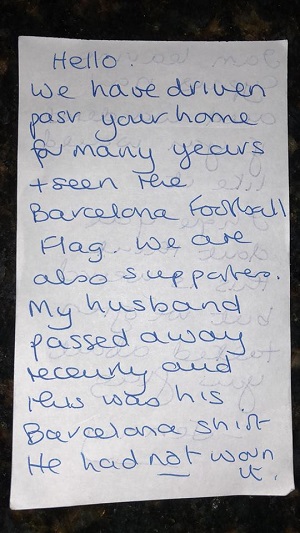 Hello.
We have driven
past your home
for many years
+ seen the
Barcelona Football
Flag. We are
also supporters.
My husband
passed away
recently and
this was his
Barcelona shirt
He had not worn
it.